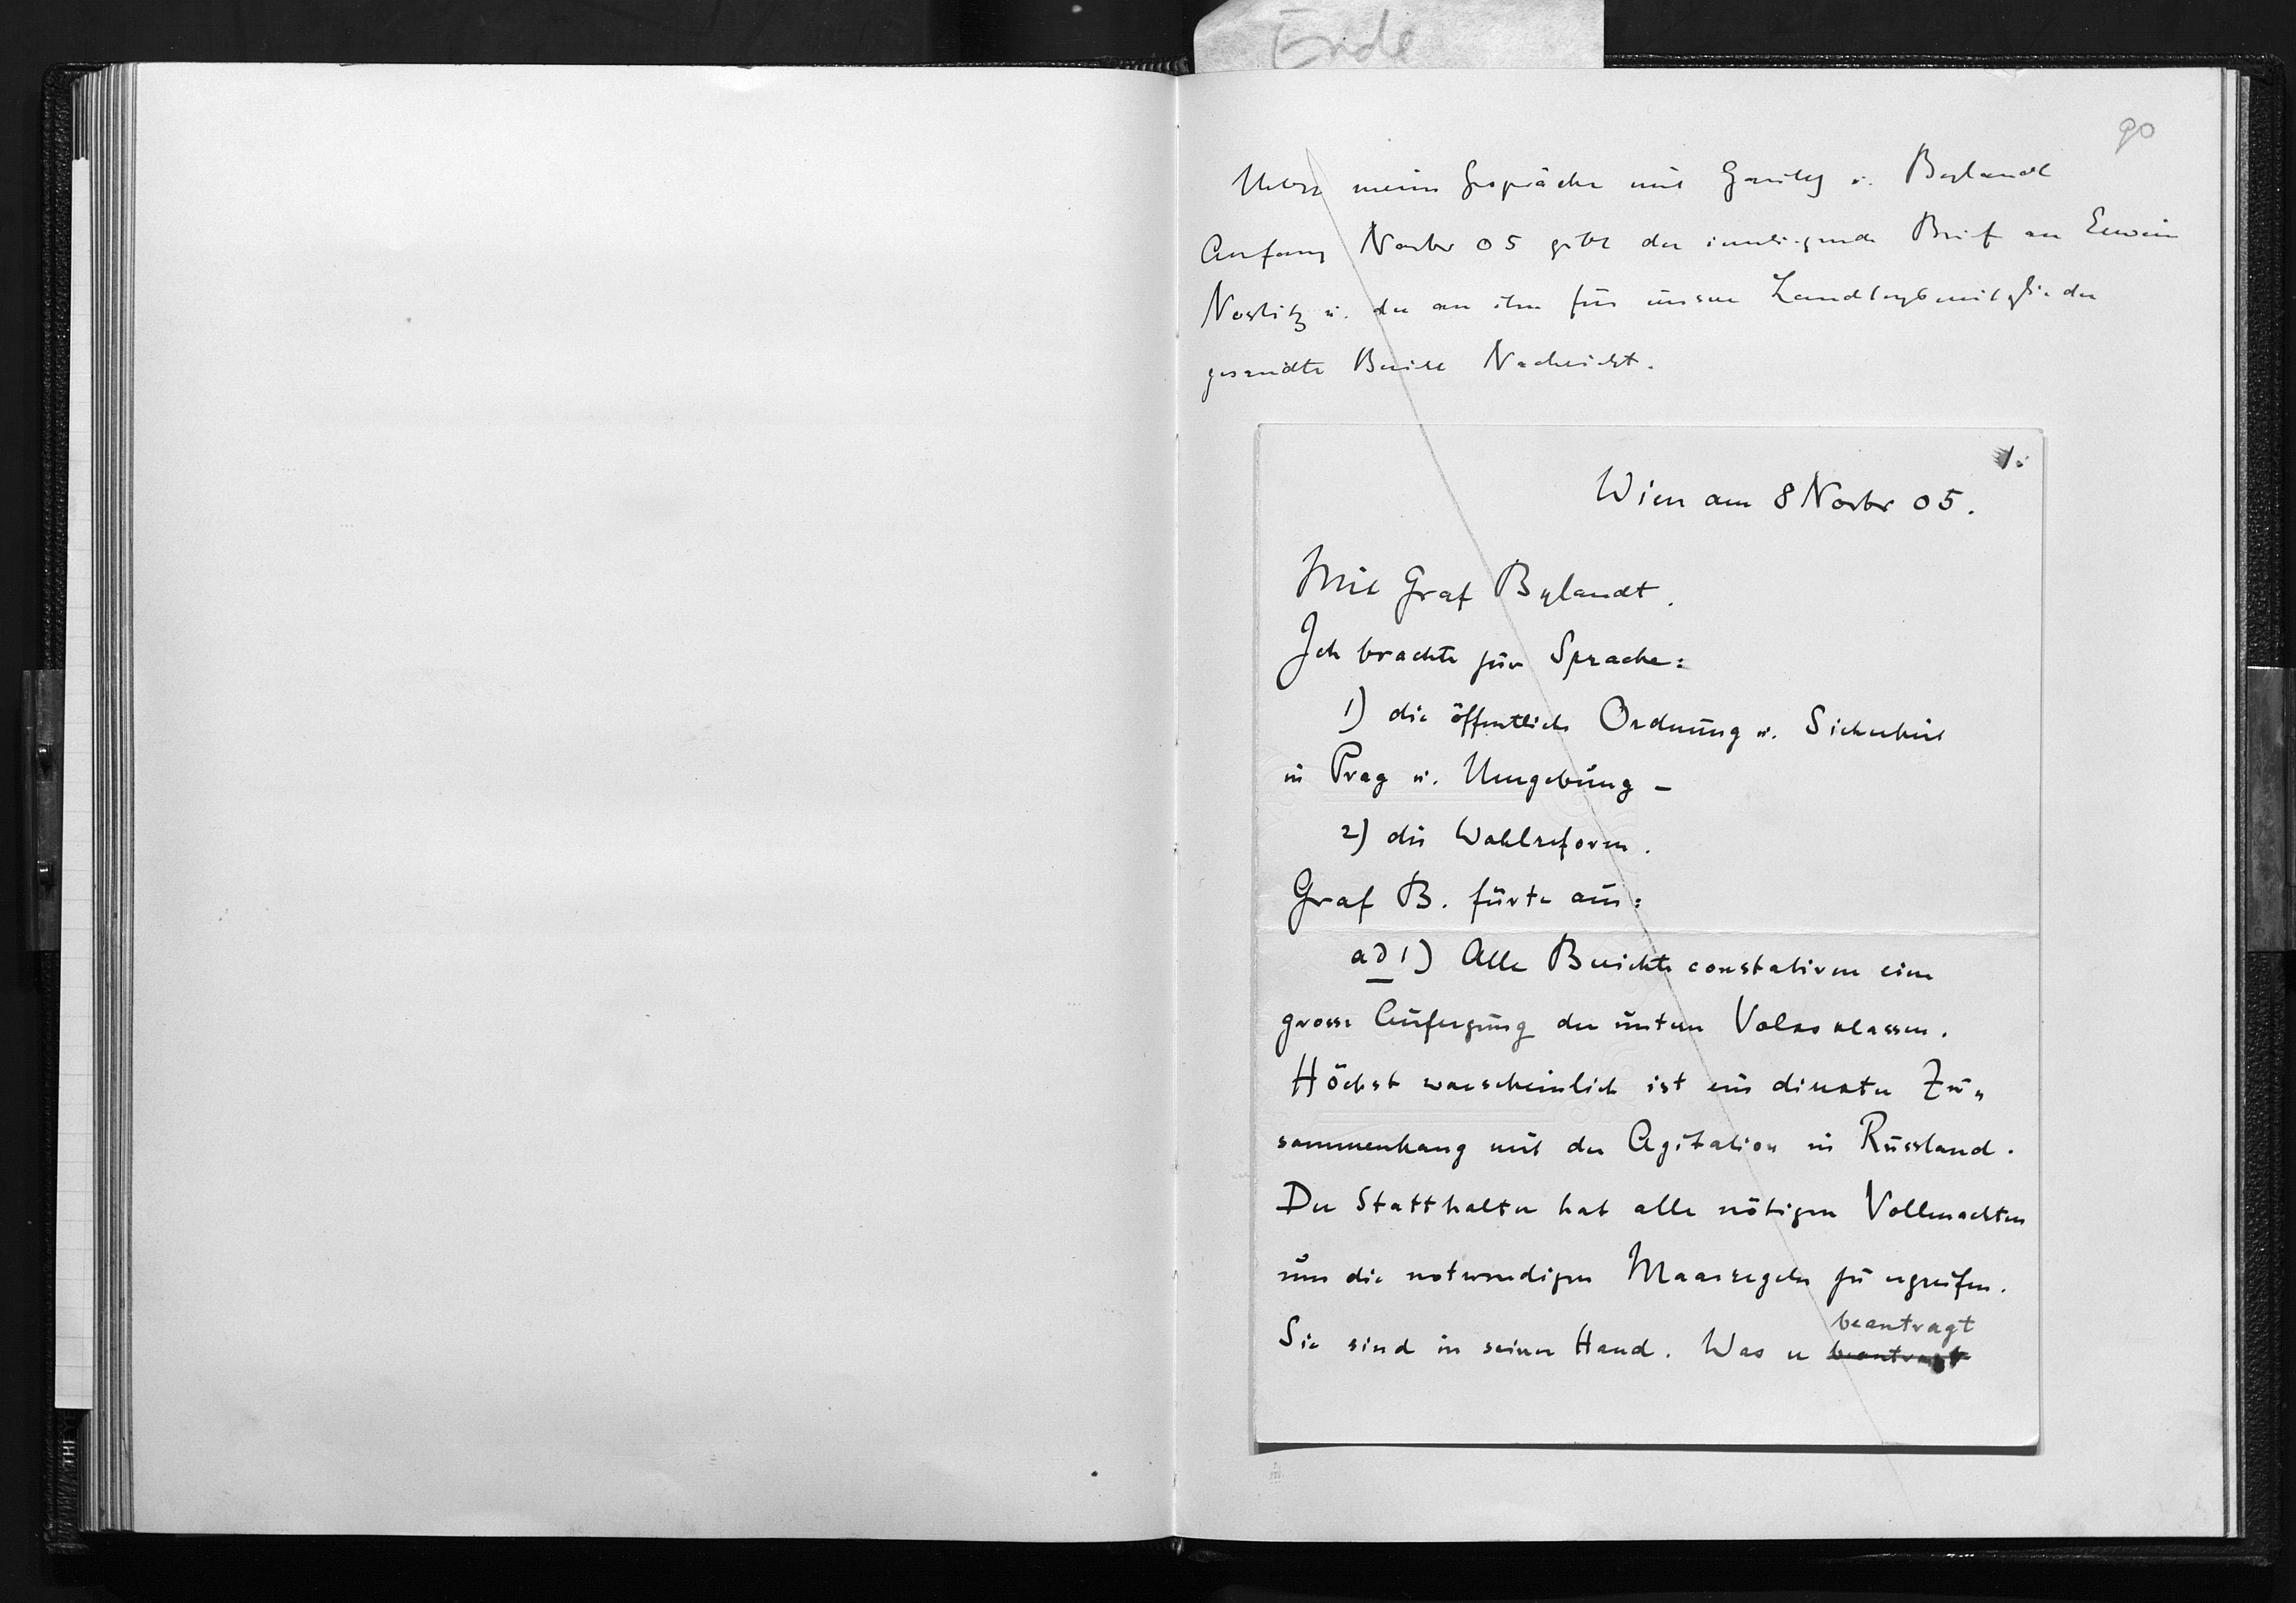 Ende
90
Ueber meine Gespräche mit Gautsch u. Bylandt
Anfang Novbr 05 gibt der inneliegende Brief an Erwein
Nostitz u. der an ihn für unsere Landtagsmitglieder
gesandte Bericht Nachricht.
1.
Wien am 8 Novbr 05.
Mit Graf Bylandt.
Ich brachte zur Sprache:
1) die öffentliche Ordnung u. Sicherheit
in Prag u. Umgebung –
2) die Wahlreform.
Graf B. fürte aus:
ad 1) Alle Berichte constatiren eine
grosse Aufregung der untern Volksklassen.
Höchst warscheinlich ist ein direkter Zu„
sammenhang mit der Agitation in Russland.
Der Statthalter hat alle nötigen Vollmachten
um die notwendigen Maasregeln zu ergreifen.
beantragt
Sie sind in seiner Hand. Was er beantragt